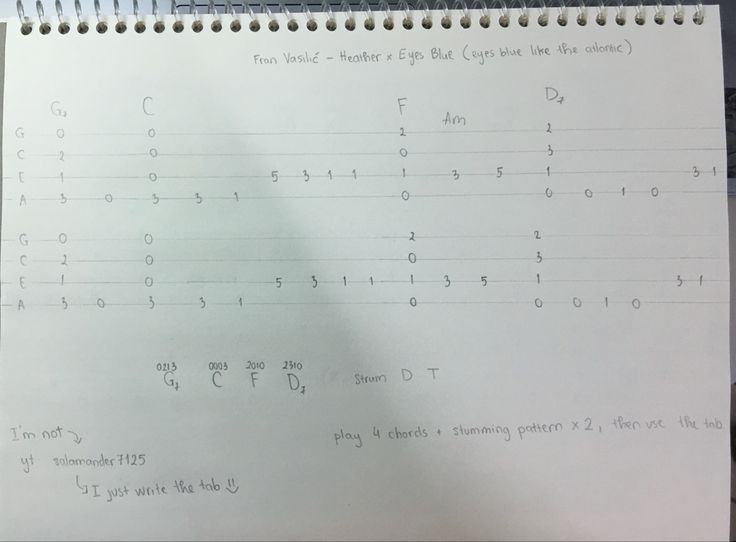 Fran Vasilić - Heather x Eyes Blue (eyes blue like the atlantic)
G7 C F Am D7
G 0 0 2 2
C 2 0 0 3
E 1 0 5 3 1 1 1 3 5 1 3 1
A 3 0 3 3 1 0 0 0 1 0
G 0 0 2 2
C 2 0 0 3
E 1 0 5 3 1 1 1 3 5 1 3 1
A 3 0 3 3 1 0 0 0 1 0
0213 0003 2010 2310
G7 C F D7 Strum D T
I'm not
play 4 chords + stumming pattern x 2, then use the tab
yt salamander7125
I just write the tab